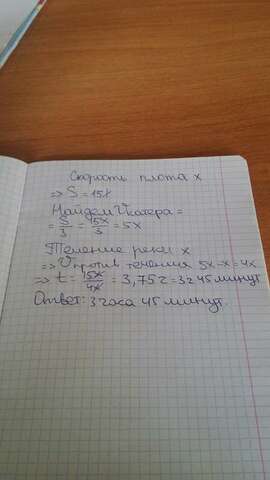 Скорость плота x
⇒ S = 15x
Найдем Vкатера =
= S/3 = 15x/3 = 5x
Течение реки x
⇒ Vпротив течения 5x-x=4x
⇒ t = 15x/4x = 3,75г = 3г 45 минут
Ответ: 3 часа 45 минут.